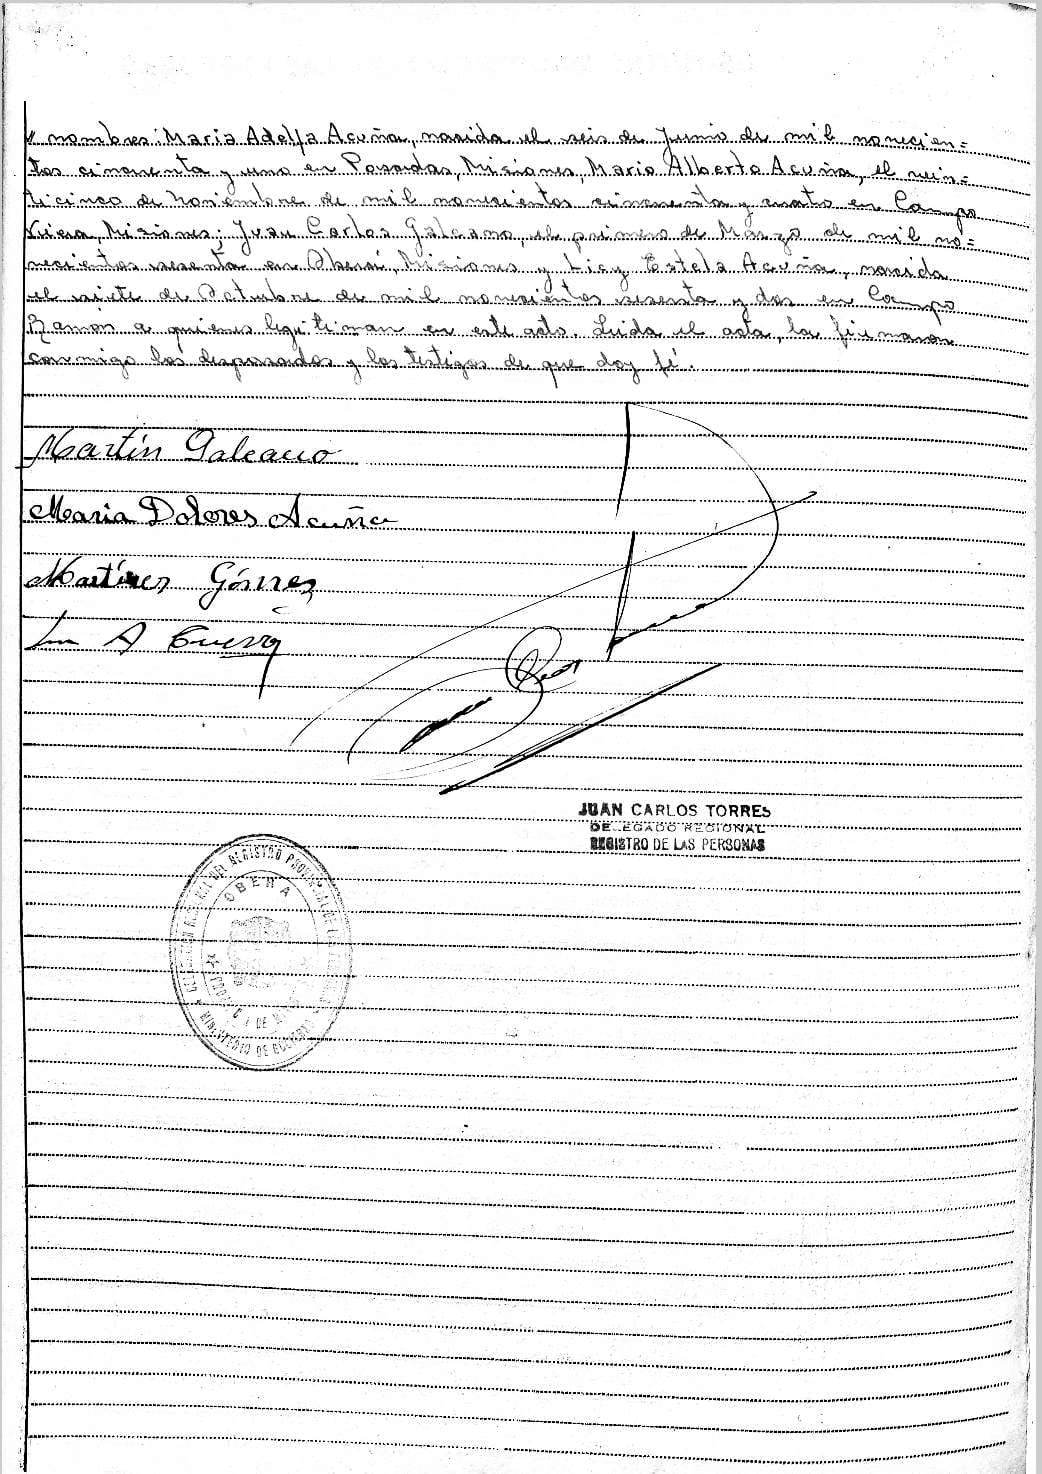 nombres: Maria Adelfa Acuña, nacida el seis de Junio de mil novecien=
tos cincuenta y uno en Posadas, Misiones, Mario Alberto Acuña, el vein=
ticinco de Noviembre de mil novecientos cincuenta y cuatro en Campo
Viera, Misiones; Juan Carlos Galeano, el primero de Marzo de mil no=
vecientos sesenta en Oberá, Misiones y Licy Estela Acuña, nacida
el siete de Octubre de mil novecientos sesenta y dos en Campo
Ramón a quienes legitiman en este acto. Leida el acta, la firman
conmigo los desposados y los testigos de que doy fé.
Martín Galeano
Maria Dolores Acuña
Martínez Gómez
A
JUAN CARLOS TORRES
DELEGADO REGIONAL
REGISTRO DE LAS PERSONAS
DEL REGISTRO PROVINCIAL DE LAS PERSONAS
OBERA
PROVINCIA DE MISIONES
MINISTERIO DE GOBIERNO